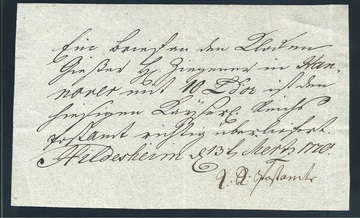 Ein Brief an den Glocken
Gießer H. Ziegener in Han-
nover mit 10 Thlr ist dem
hiesigen Kayserl. Reichs
Postamt richtig überliefert.
Hildesheim d 13t Mertz 1770.
Postamt